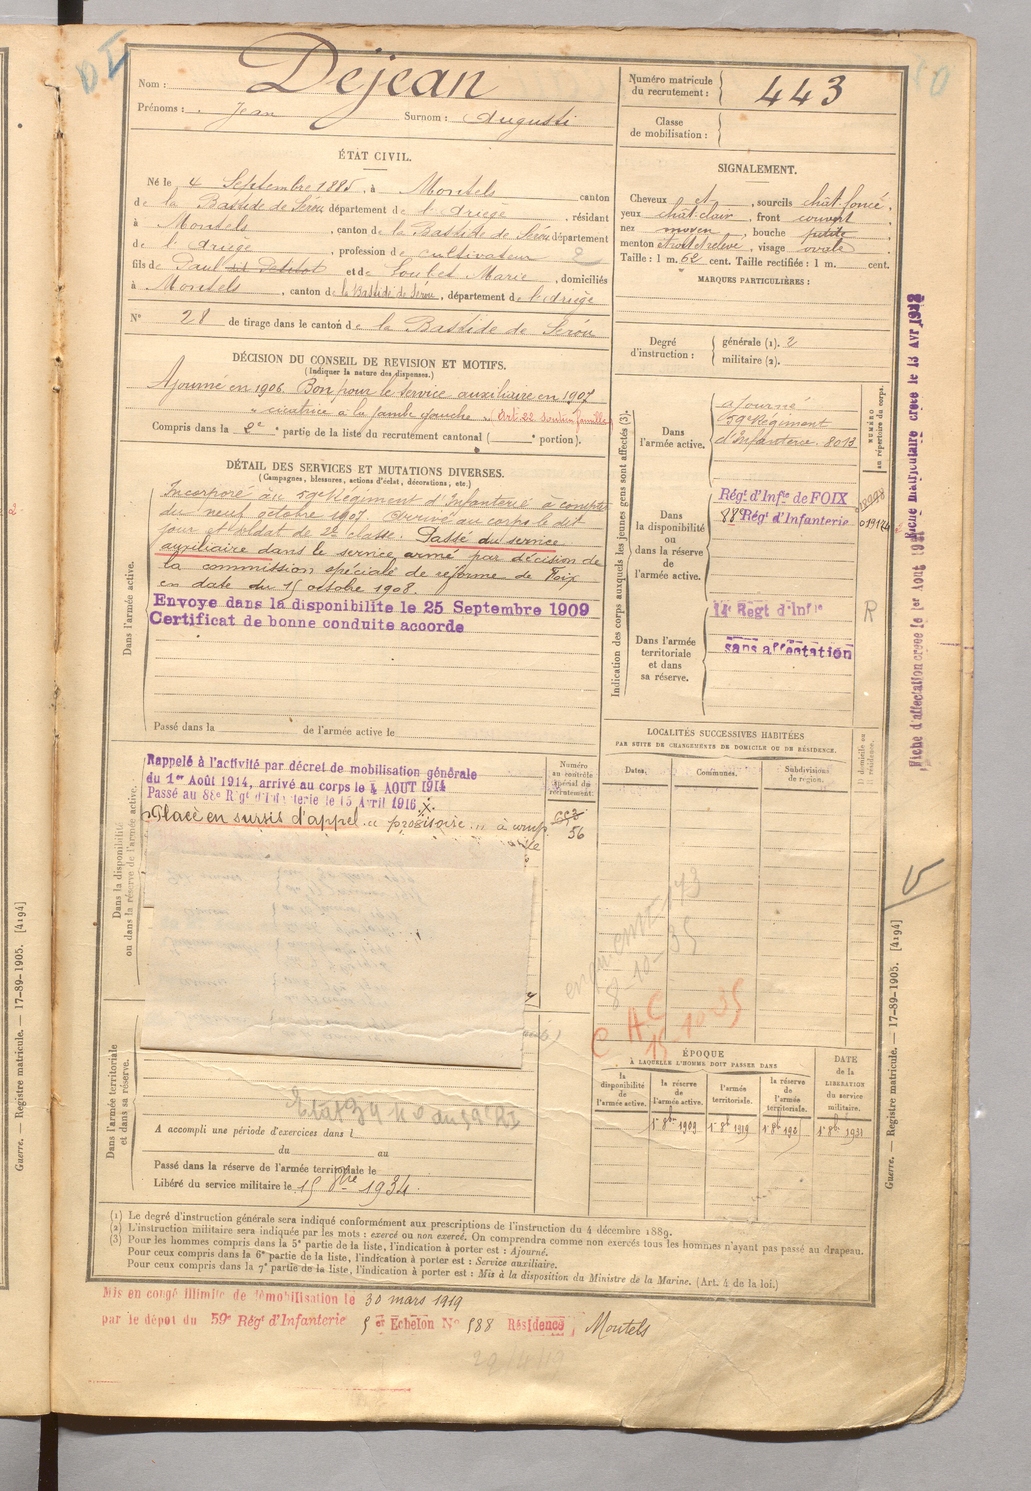 Nom : Déjean
Prénoms : Jean Surnom : Augusti
Numéro matricule du recrutement : 443
Classe de mobilisation :
ÉTAT CIVIL.
Né le 4 Septembre 1885, à Montels canton
de la Bastide de Sérou département de l'Ariège, résidant
à Montels, canton de la Bastide de Sérou département
de l'Ariège, profession de cultivateur 2
fils de Paul et de Loubet Marie, domiciliés
à Montels, canton de la Bastide de Sérou, département de l'Ariège
N° 28 de tirage dans le canton de la Bastide de Sérou
SIGNALEMENT.
Cheveux et, sourcils chat. foncé,
yeux chat. clair, front couvert
nez moyen, bouche petite
menton, visage ovale
Taille : 1 m. 62 cent. Taille rectifiée : 1 m. cent.
MARQUES PARTICULIÈRES :
Degré d'instruction : générale (1). 2
militaire (2).
DÉCISION DU CONSEIL DE REVISION ET MOTIFS.
(Indiquer la nature des dispenses.)
Ajourné en 1906. Bon pour le service auxiliaire en 1907
cicatrice à la jambe gauche (Art. 22 soutien famille)
Compris dans la 2e partie de la liste du recrutement cantonal ( e portion).
DÉTAIL DES SERVICES ET MUTATIONS DIVERSES.
(Campagnes, blessures, actions d'éclat, décorations, etc.)
Dans l'armée active.
Incorporé au 59e Régiment d'Infanterie à compter
du neuf octobre 1907. Arrivé au corps le dit
jour et soldat de 2e classe. Passé du service
auxiliaire dans le service armé par décision de
la commission spéciale de réforme de Foix
en date du 15 octobre 1908.
Envoye dans la disponibilite le 25 Septembre 1909
Certificat de bonne conduite accorde
Passé dans la de l'armée active le
Indication des corps auxquels les jeunes gens sont affectés (3).
NUMÉRO au répertoire du corps.
Dans l'armée active.
ajourné
59e Régiment
d'Infanterie. 8013
Dans la disponibilité ou dans la réserve de l'armée active.
Régt d'Infie de FOIX
88e Régt d'Infanterie
Dans l'armée territoriale et dans sa réserve.
14e Regt d'Infie
sans affectation
R
Fiche matriculaire créée le 13 Avr
Fiche d'affectation créée le 1er Août
Dans la disponibilité ou dans la réserve de l'armée active.
Rappelé à l'activité par décret de mobilisation générale
du 1er Août 1914, arrivé au corps le 4 AOUT 1914
Passé au 88e Rgt d'Infanterie le 15 Avril 1916. X.
Placé en sursis d'appel
Numéro au contrôle spécial du recrutement.
56
LOCALITÉS SUCCESSIVES HABITÉES
PAR SUITE DE CHANGEMENTS DE DOMICILE OU DE RÉSIDENCE.
Dates. Communes. Subdivisions de région. D domicile ou R résidence.
8-10-35
C A C
15-10-35
ÉPOQUE
À LAQUELLE L'HOMME DOIT PASSER DANS
la disponibilité de l'armée active. la réserve de l'armée active. l'armée territoriale. la réserve de l'armée territoriale. DATE de la LIBÉRATION du service militaire.
1er 8bre 1909 1er 8bre 1919 1er 8bre 1931
Dans l'armée territoriale et dans sa réserve.
A accompli une période d'exercices dans l
du au
Passé dans la réserve de l'armée territoriale le
Libéré du service militaire le 15 8bre 1934.
(1) Le degré d'instruction générale sera indiqué conformément aux prescriptions de l'instruction du 4 décembre 1889.
(2) L'instruction militaire sera indiquée par les mots : exercé ou non exercé. On comprendra comme non exercés tous les hommes n'ayant pas passé au drapeau.
(3) Pour les hommes compris dans la 5e partie de la liste, l'indication à porter est : Ajourné.
Pour ceux compris dans la 6e partie de la liste, l'indication à porter est : Service auxiliaire.
Pour ceux compris dans la 7e partie de la liste, l'indication à porter est : Mis à la disposition du Ministre de la Marine. (Art. 4 de la loi.)
Guerre. — Registre matricule. — 17-89-1905. [4194]
Guerre. — Registre matricule. — 17-89-1905. [4194]
Mis en congé illimité de démobilisation le 30 mars 1919
par le dépot du 59e Régt d'Infanterie 5 er Echelon No 588 Résidence Montels